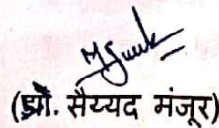 (प्रो. सैय्यद मंजूर)